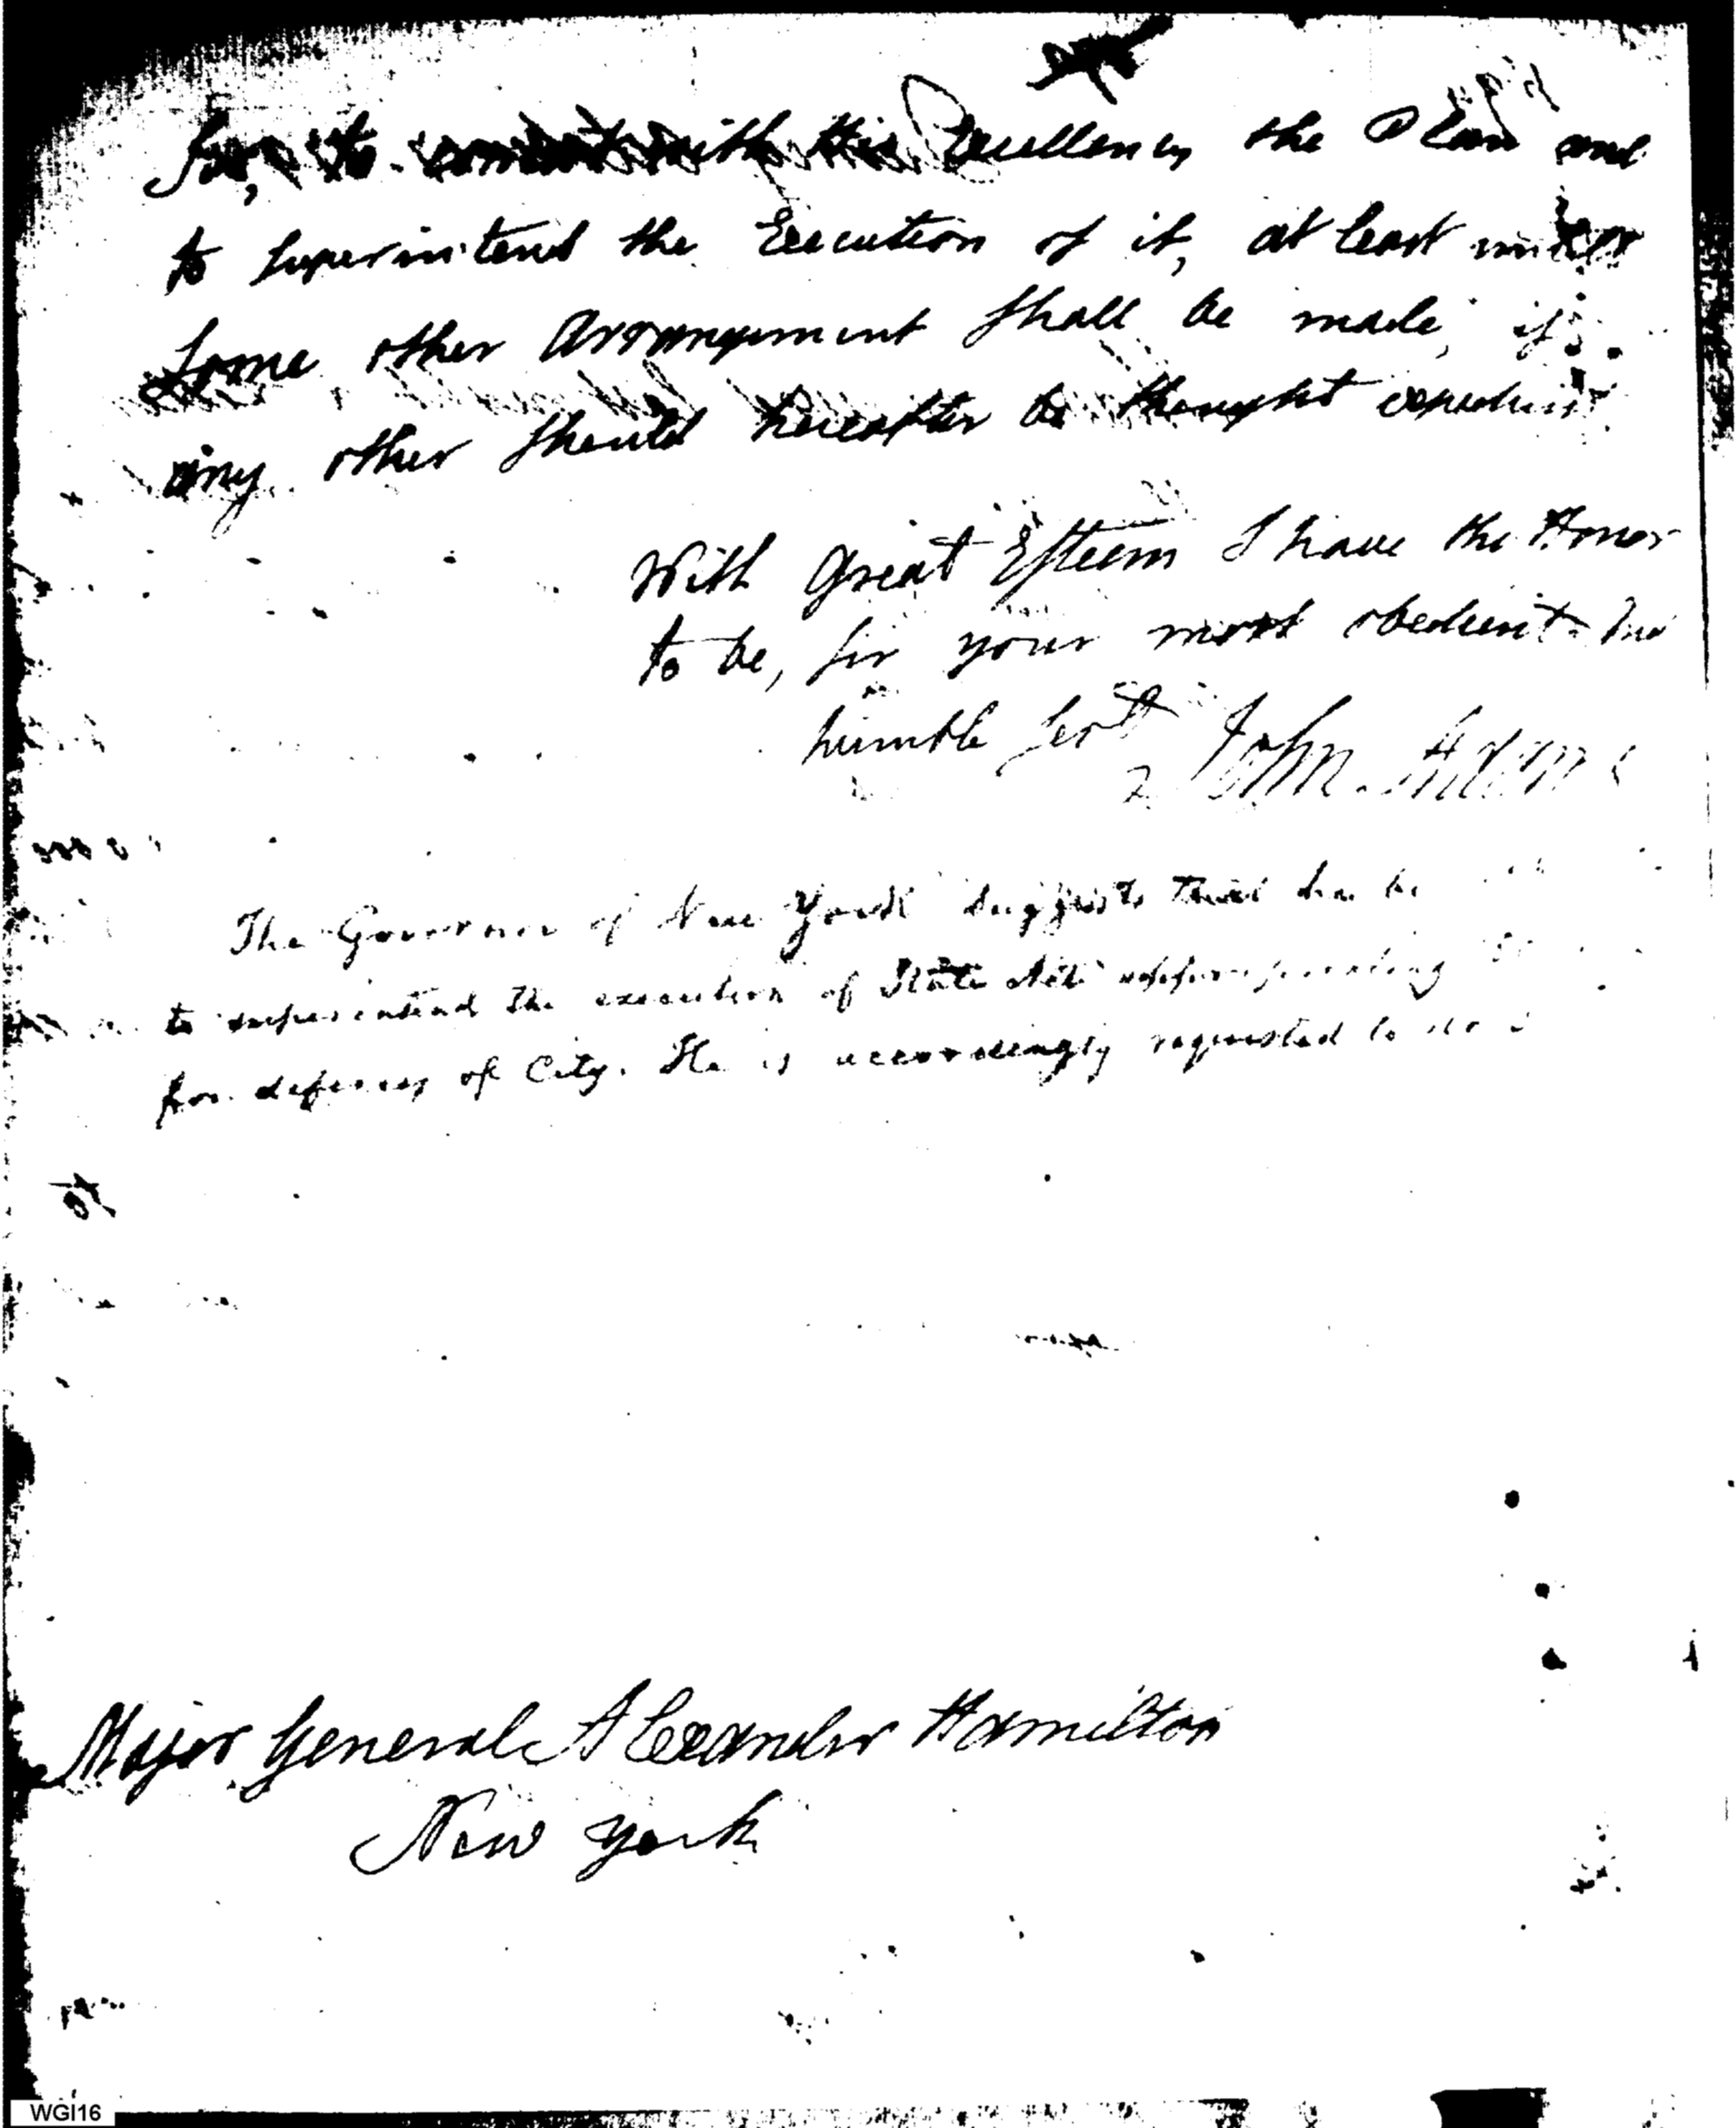 Sir, to concert with his Excellency the Plan and
to superintend the Execution of it, at least untill
some other Arrangement shall be made, if
any other should hereafter be thought expedient
With great Esteem I have the Honor
to be, sir your most obedient and
humble sert
John Adams
The Governor of New York suggests that he be
to superintend the execution of State Act appropriating
for defences of City. He is accordingly requested to do
Major General Alexander Hamilton
New York
WGI16